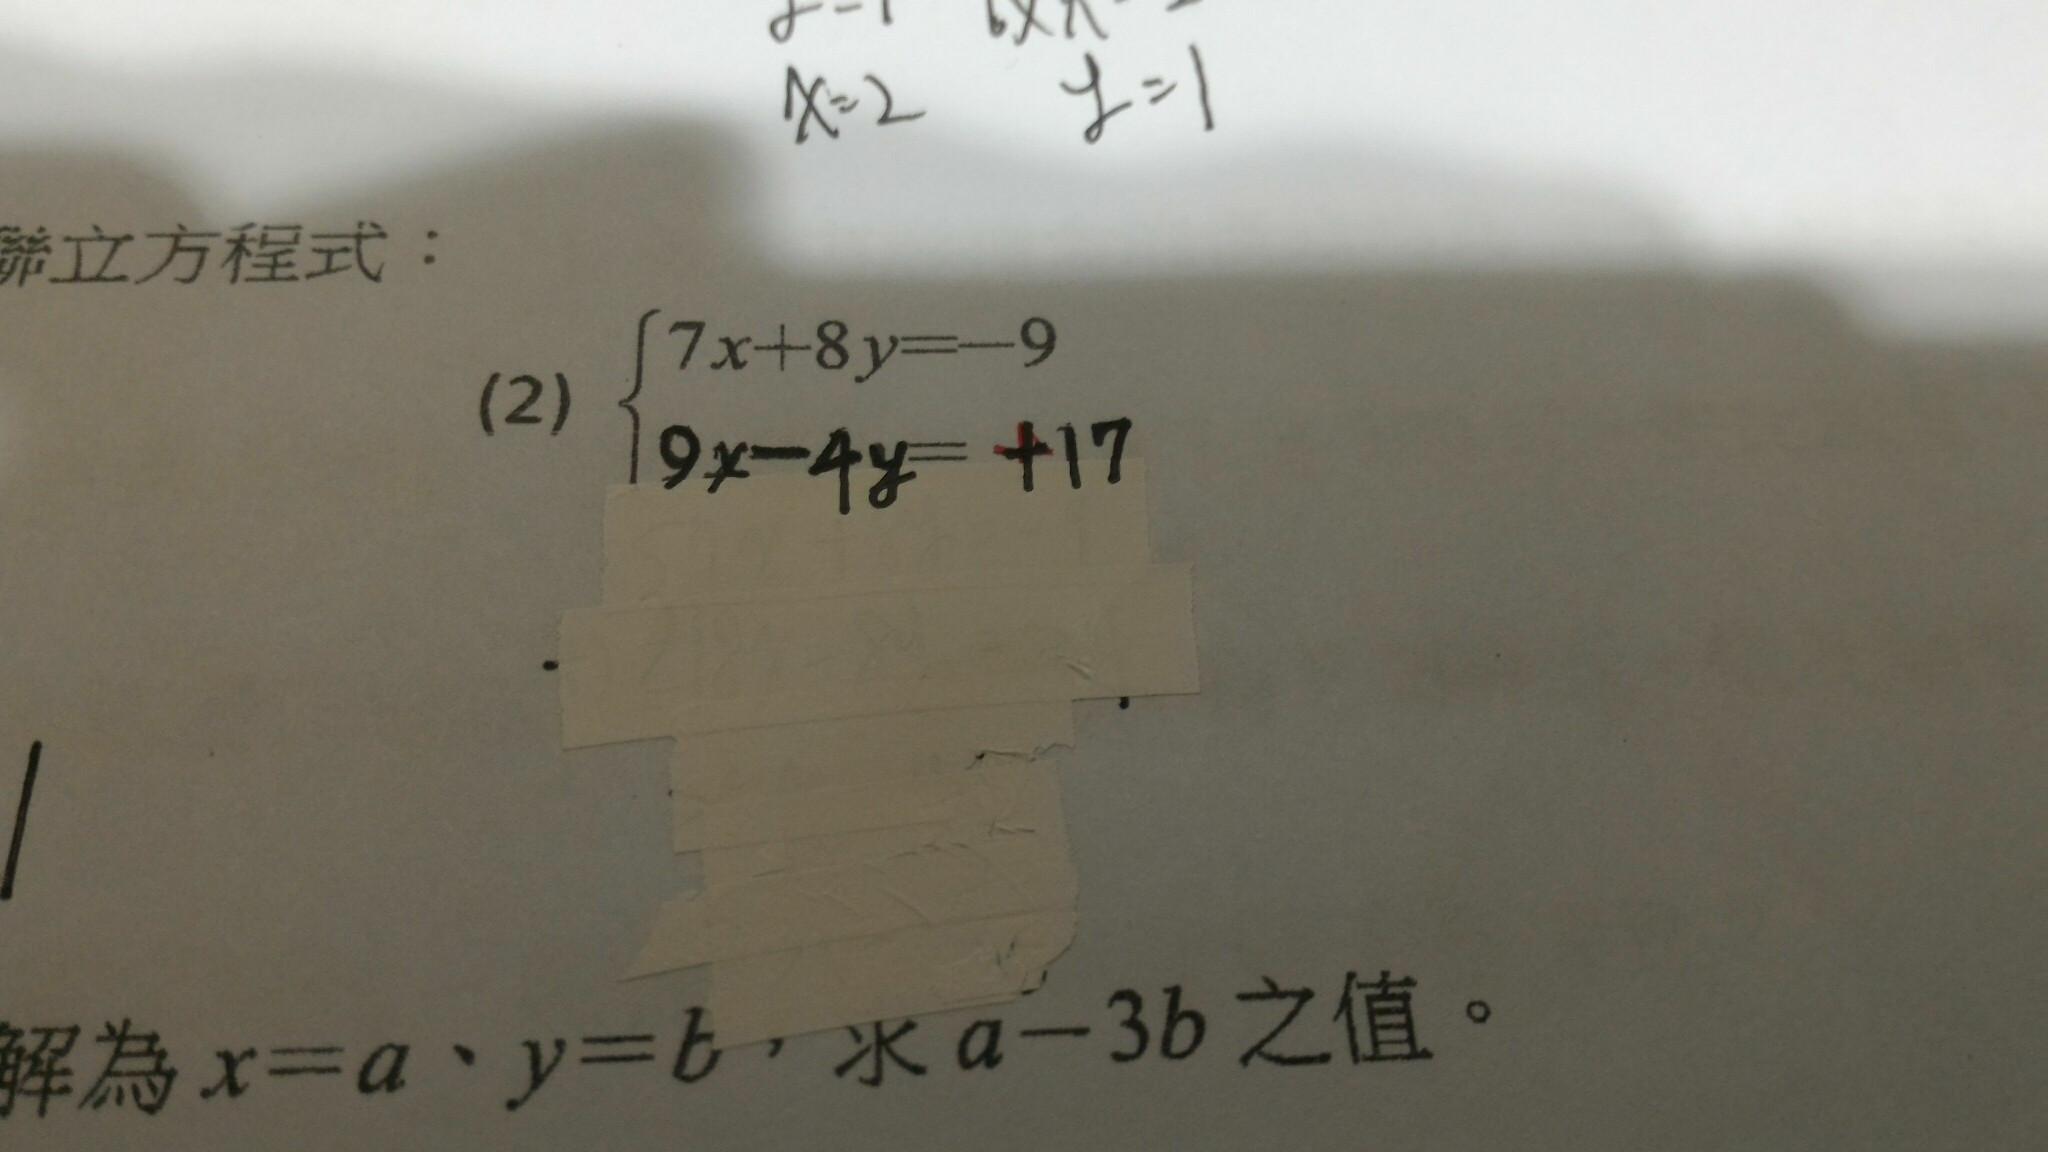 x=2 y=1
聯立方程式：
(2) 7x+8y=-9
9x-4y= +17
解為 x=a、y=b，求 a-3b 之值。